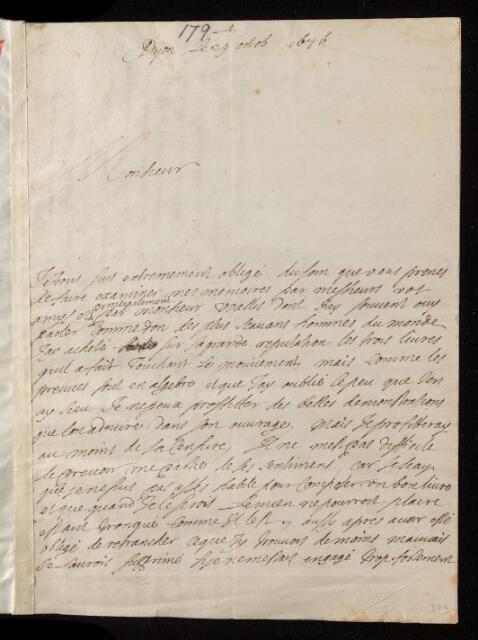 179
Dyon le 29 octob 1676
Monsieur
Je vous suis extremement obligé du soin que vous prenes
de faire examiner mes memoires par messieurs vos
amys et principalement par monsieur Vvallis dont j'ay souvent ouy
parler comme d'un des plus scavans hommes du monde
J'ay acheté sur sa grande reputation les trois livres
qu'il a fait touchant le mouvement mais comme les
preuves sont en algebre et que J'ay oublié le peu que J'en
ay sceu Je ne peux proffitter des belles demonstrations
que l'on admire dans son ouvrage, mais Je profitteray
au moins de sa censure, Il ne m'est pas difficile
de prevoir une partie de ses sentimens, car Je scay
que je ne suis pas asses habile pour composer un bon livre
et que quand Je le serois le mien ne pourroit plaire
estant tronqué comme Il est, aussi apres avoir esté
obligé de retrancher ce que J'y trouvois de moins mauvais
Je l'aurois supprimé si je ne m'estois engagé trop fortement